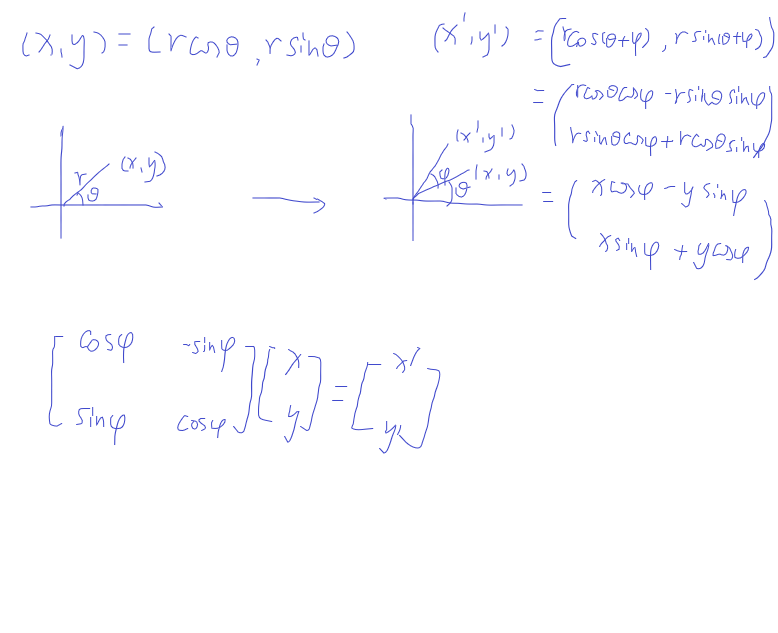 (x,y) = (r cosθ, r sinθ)
(x',y') = (rcos(θ+φ), r sin(θ+φ))
= (rcosθcosφ - rsinθsinφ
rsinθcosφ + rcosθsinφ)
= (xcosφ - y sinφ
xsinφ + ycosφ)
r θ (x,y)
(x',y')
φ θ (x,y)
[cosφ -sinφ
sinφ cosφ] [x
y] = [x'
y']